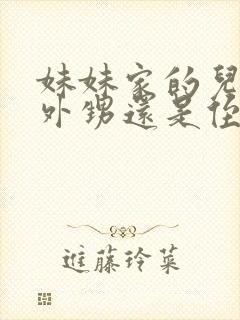 妹妹家的兒
外甥還是侄
進藤玲菜